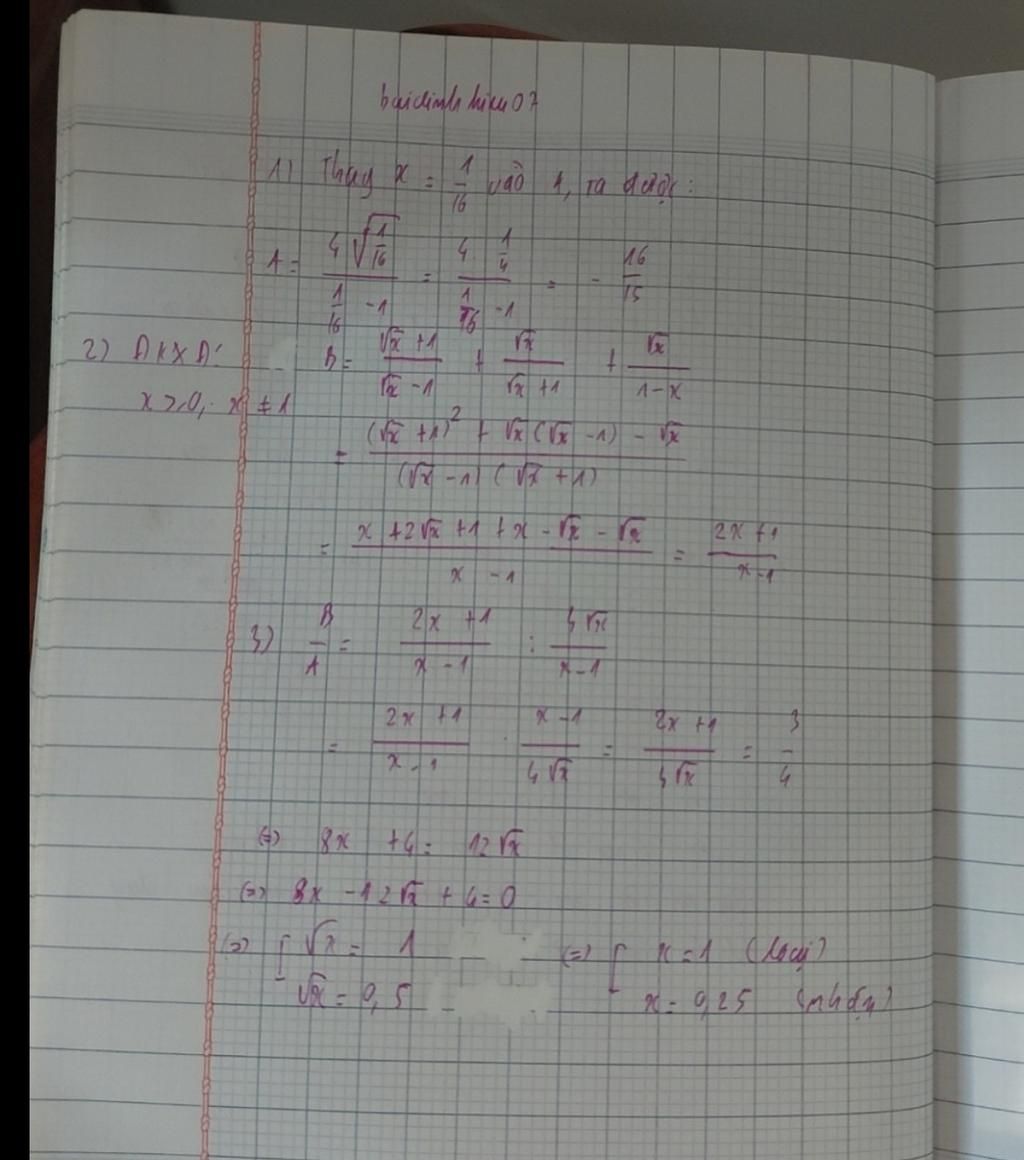 buidinhhieu07
1) Thay x = 1/16 vào A, ta được:
A = 4√(1/16) / (1/16 - 1) = 4 1/4 / (1/16 - 1) = - 16/15
2) ĐKXĐ: B = (√x + 1)/(√x - 1) + √x/(√x + 1) + √x/(1 - x)
x ≥ 0, x ≠ 1
= ((√x + 1)² + √x(√x - 1) - √x) / ((√x - 1)(√x + 1))
= (x + 2√x + 1 + x - √x - √x)/(x - 1) = (2x + 1)/(x - 1)
3) B/A = (2x + 1)/(x - 1) : 4√x/(x - 1)
= (2x + 1)/(x - 1) . (x - 1)/(4√x) = (2x + 1)/(4√x) = 3/4
(=) 8x + 4 = 12√x
(=) 8x - 12√x + 4 = 0
(=) [ √x = 1 (=) [ x = 1 (loại)
√x = 0,5 x = 0,25 (nhận)